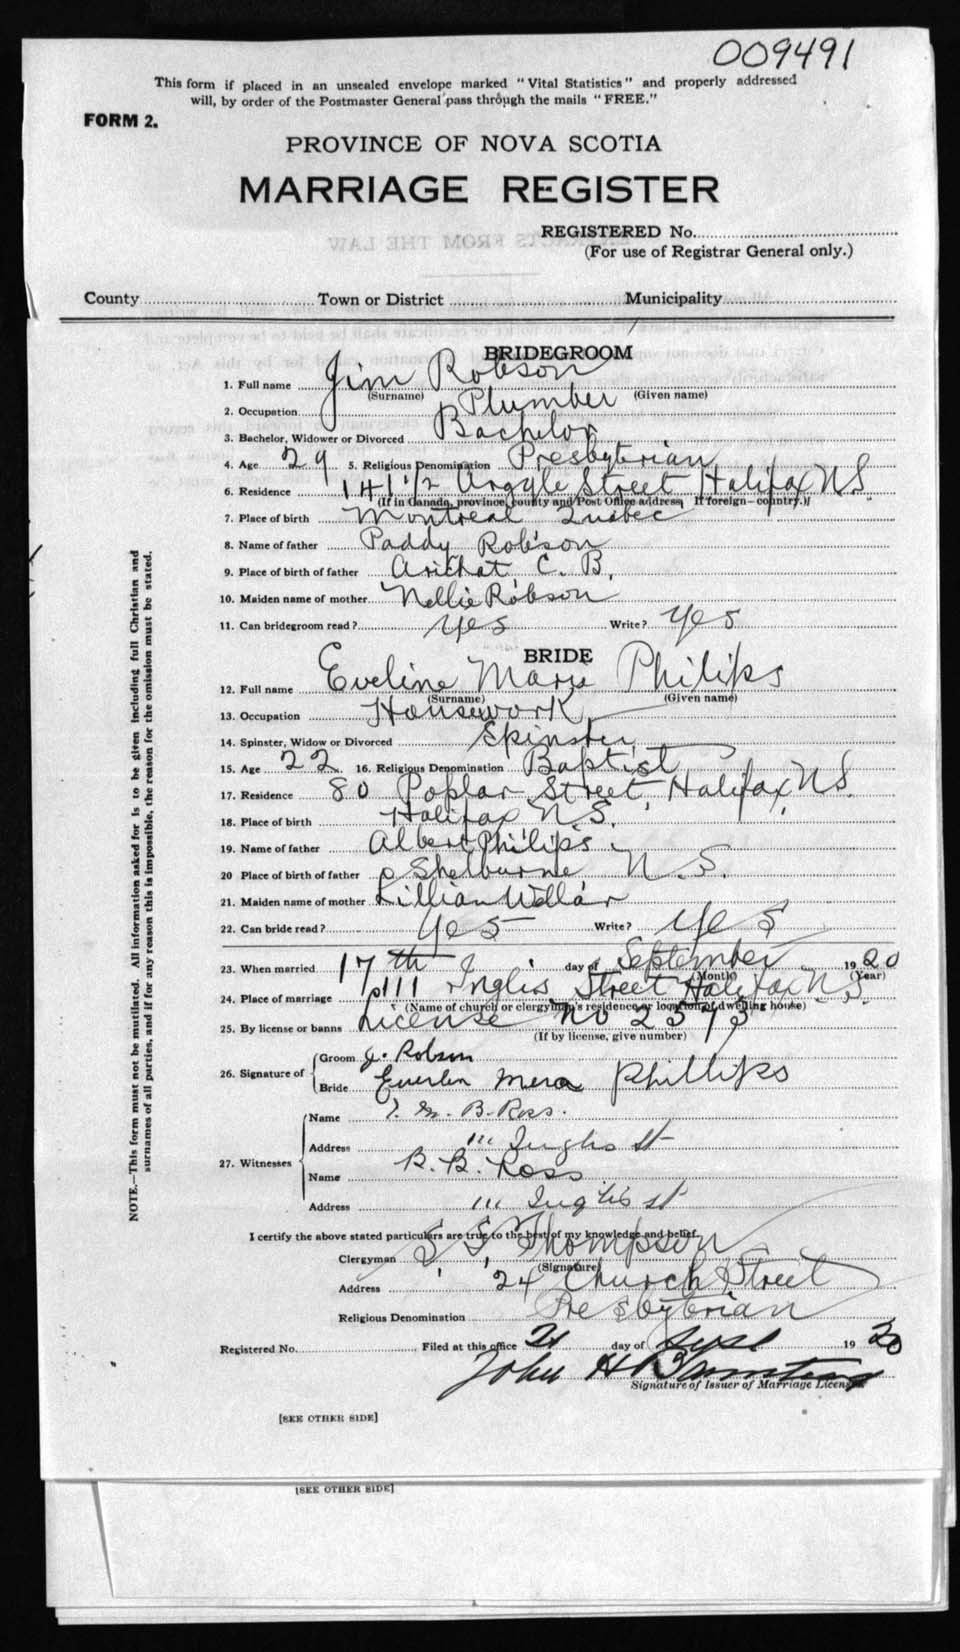 009491
This form if placed in an unsealed envelope marked "Vital Statistics" and properly addressed
will, by order of the Postmaster General pass through the mails "FREE."
FORM 2.
PROVINCE OF NOVA SCOTIA
MARRIAGE REGISTER
REGISTERED No.
(For use of Registrar General only.)
County Town or District Municipality
BRIDEGROOM
1. Full name Jim Robson
(Surname) (Given name)
2. Occupation Plumber
3. Bachelor, Widower or Divorced Bachelor
4. Age 29 5. Religious Denomination Presbyterian
6. Residence 141 1/2 Argyle Street Halifax N.S.
(If in Canada, province, county and Post Office address, If foreign—country.)
7. Place of birth Montreal Quebec
8. Name of father Paddy Robson
9. Place of birth of father Arichat C. B.
10. Maiden name of mother Nellie Robson
11. Can bridegroom read? yes Write? yes
BRIDE
12. Full name Eveline Marie Philips
(Surname) (Given name)
13. Occupation Housework
14. Spinster, Widow or Divorced Spinster
15. Age 22 16. Religious Denomination Baptist
17. Residence 80 Poplar Street, Halifax, N.S.
18. Place of birth Halifax N.S.
19. Name of father Albert Philips
20 Place of birth of father Shelburne N.S.
21. Maiden name of mother Lillian
22. Can bride read? yes Write? yes
23. When married 17th day of September 1920
(Month) (Year)
24. Place of marriage 111 Inglis Street Halifax N.S.
(Name of church or clergyman's residence or location of dwelling house)
25. By license or banns License No 2573
(If by license, give number)
26. Signature of
Groom J. Robson
Bride Phillips
27. Witnesses
Name B. Ross.
Address 111 Inglis St
Name B. B. Ross
Address 111 Inglis St
I certify the above stated particulars are true to the best of my knowledge and belief.
Clergyman Thompson
(Signature)
Address 24 Church Street
Religious Denomination Presbyterian
Registered No. Filed at this office 21 day of Sept 1920
John H
Signature of Issuer of Marriage Licenses
[SEE OTHER SIDE]
[SEE OTHER SIDE]
NOTE.—This form must not be mutilated. All information asked for is to be given including full Christian and
surnames of all parties, and if for any reason this is impossible, the reason for the omission must be stated.